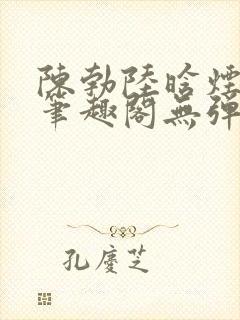 陳勃陸晗煙
筆趣閣無彈
孔慶芝